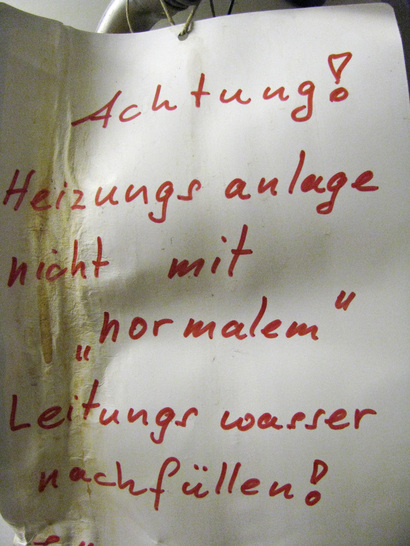 Achtung!
Heizungsanlage
nicht mit
„normalem"
Leitungswasser
nachfüllen!